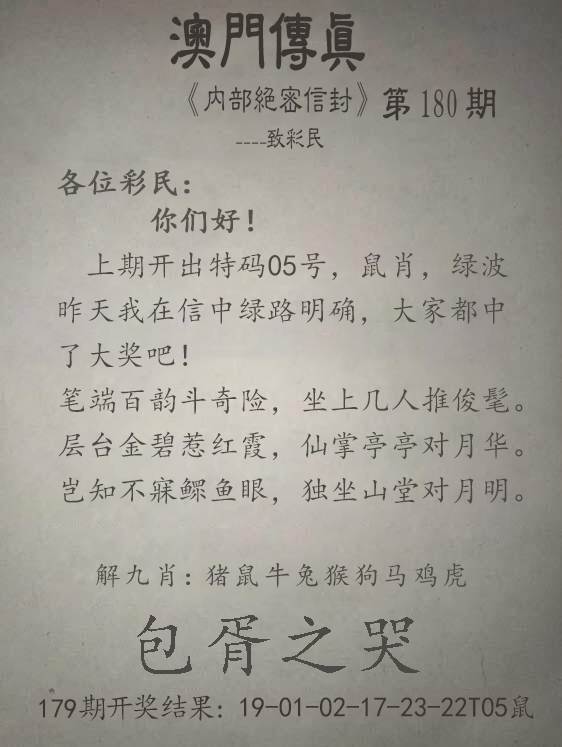 澳門傳眞
《內部絕密信封》第180期
----致彩民
各位彩民：
你们好！
上期开出特码05号，鼠肖，绿波
昨天我在信中绿路明确，大家都中
了大奖吧！
笔端百韵斗奇险，坐上几人推俊髦。
层台金碧惹红霞，仙掌亭亭对月华。
岂知不寐鳏鱼眼，独坐山堂对月明。
解九肖：猪鼠牛兔猴狗马鸡虎
包胥之哭
179期开奖结果：19-01-02-17-23-22T05鼠